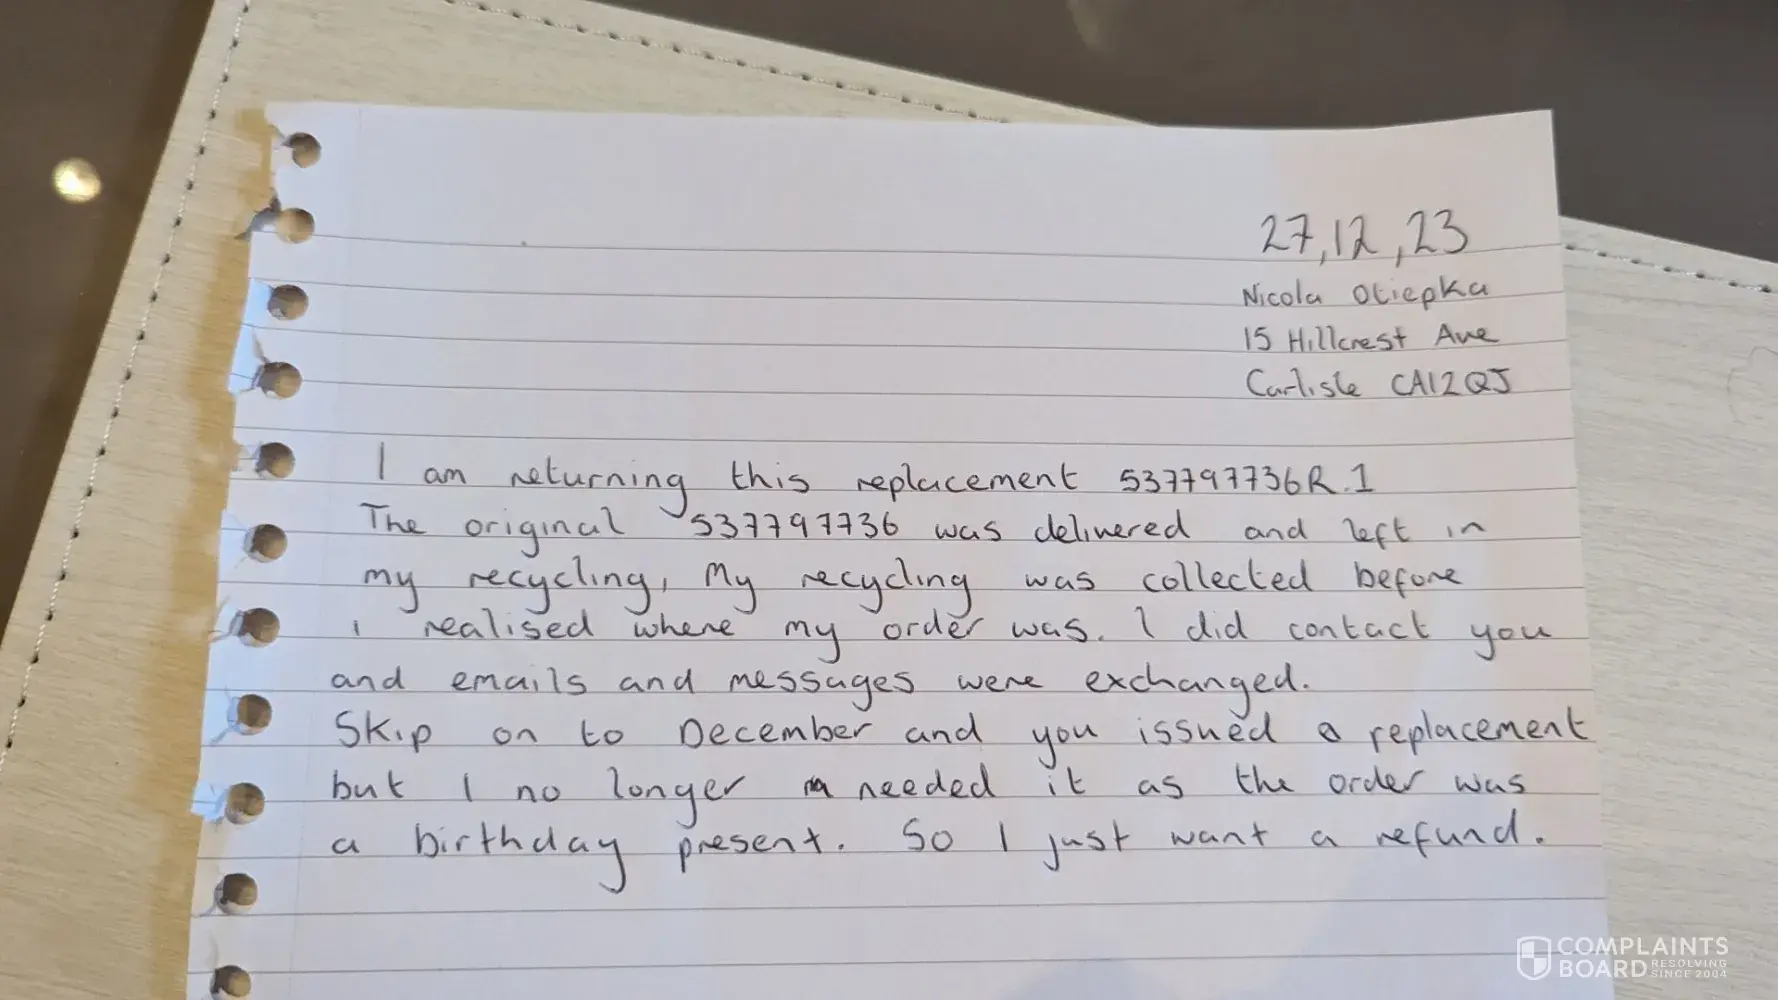 27,12,23
Nicola Otiepka
15 Hillcrest Ave
Carlisle CA12QJ
I am returning this replacement 537797736R.1
The original 537797736 was delivered and left in
my recycling, My recycling was collected before
i realised where my order was. I did contact you
and emails and messages were exchanged.
Skip on to December and you issued a replacement
but I no longer needed it as the order was
a birthday present. So I just want a refund.
COMPLAINTS
BOARD RESOLVING
SINCE 2004